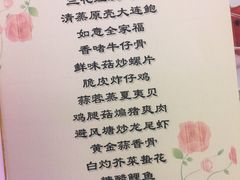 清蒸原壳大连鲍
如意全家福
香啫牛仔骨
鲜味菇炒螺片
脆皮炸仔鸡
蒜蓉蒸夏夷贝
鸡腿菇煸猪爽肉
避风塘炒龙尾虾
黄金蒜香骨
白灼芥菜蜇花
糖醋鲤鱼